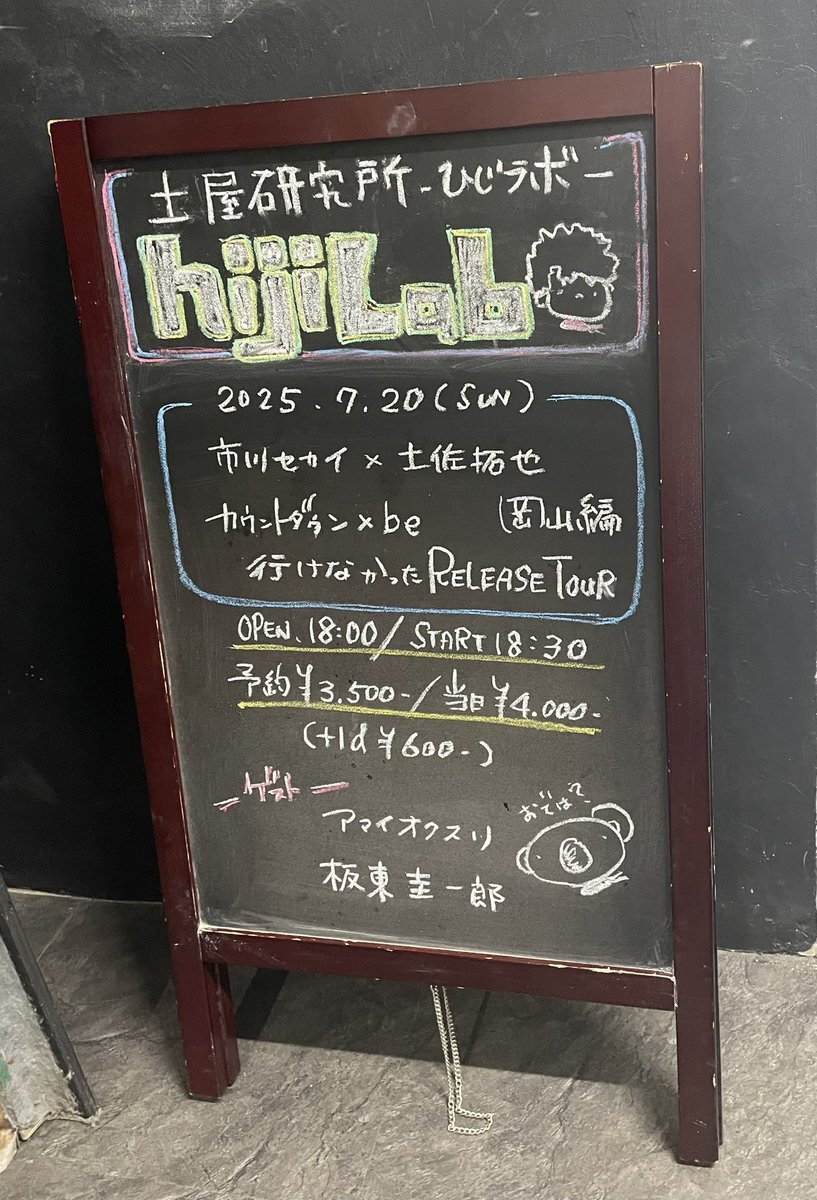 土屋研究所-ひじラボー
hijiLab
2025.7.20(SUN)
市川セカイ×土佐拓也
カウントダウン×be 岡山編
行けなかったRELEASE TOUR
OPEN.18:00/START18:30
予約¥3.500-/当日¥4.000-
(+1d ¥600-)
ゲスト
アマイオクスリ
板東圭一郎